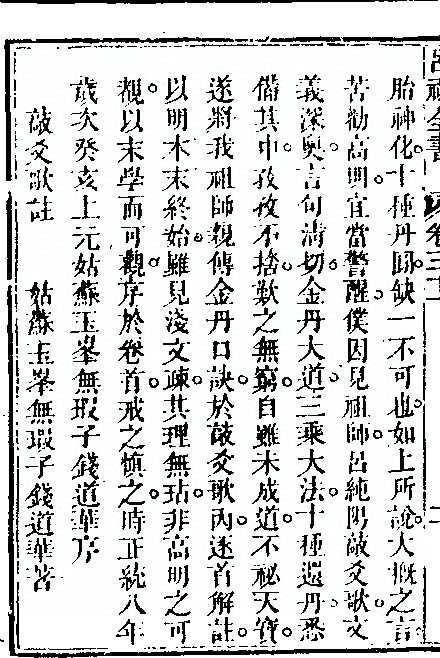 呂祖全書 卷三十二
胎神化十種丹圓缺一不可也如上所說大槪之言
苦勸高明宜當警醒僕因見祖師呂純陽敲爻歌文
義深奧言句清切金丹大道三乘大法十種還丹悉
備其中孜孜不捨歎之無窮自雖未成道不祕天寶
遂將我祖師親傳金丹口訣於敲爻歌內逐首解註
以明本末終始雖見淺文疎其理無玷非高明之可
觀以末學而可觀序於卷首戒之愼之時正統八年
歲次癸亥上元姑蘇玉峯無瑕子錢道華序
敲爻歌註 姑蘇玉峯無瑕子錢道華著